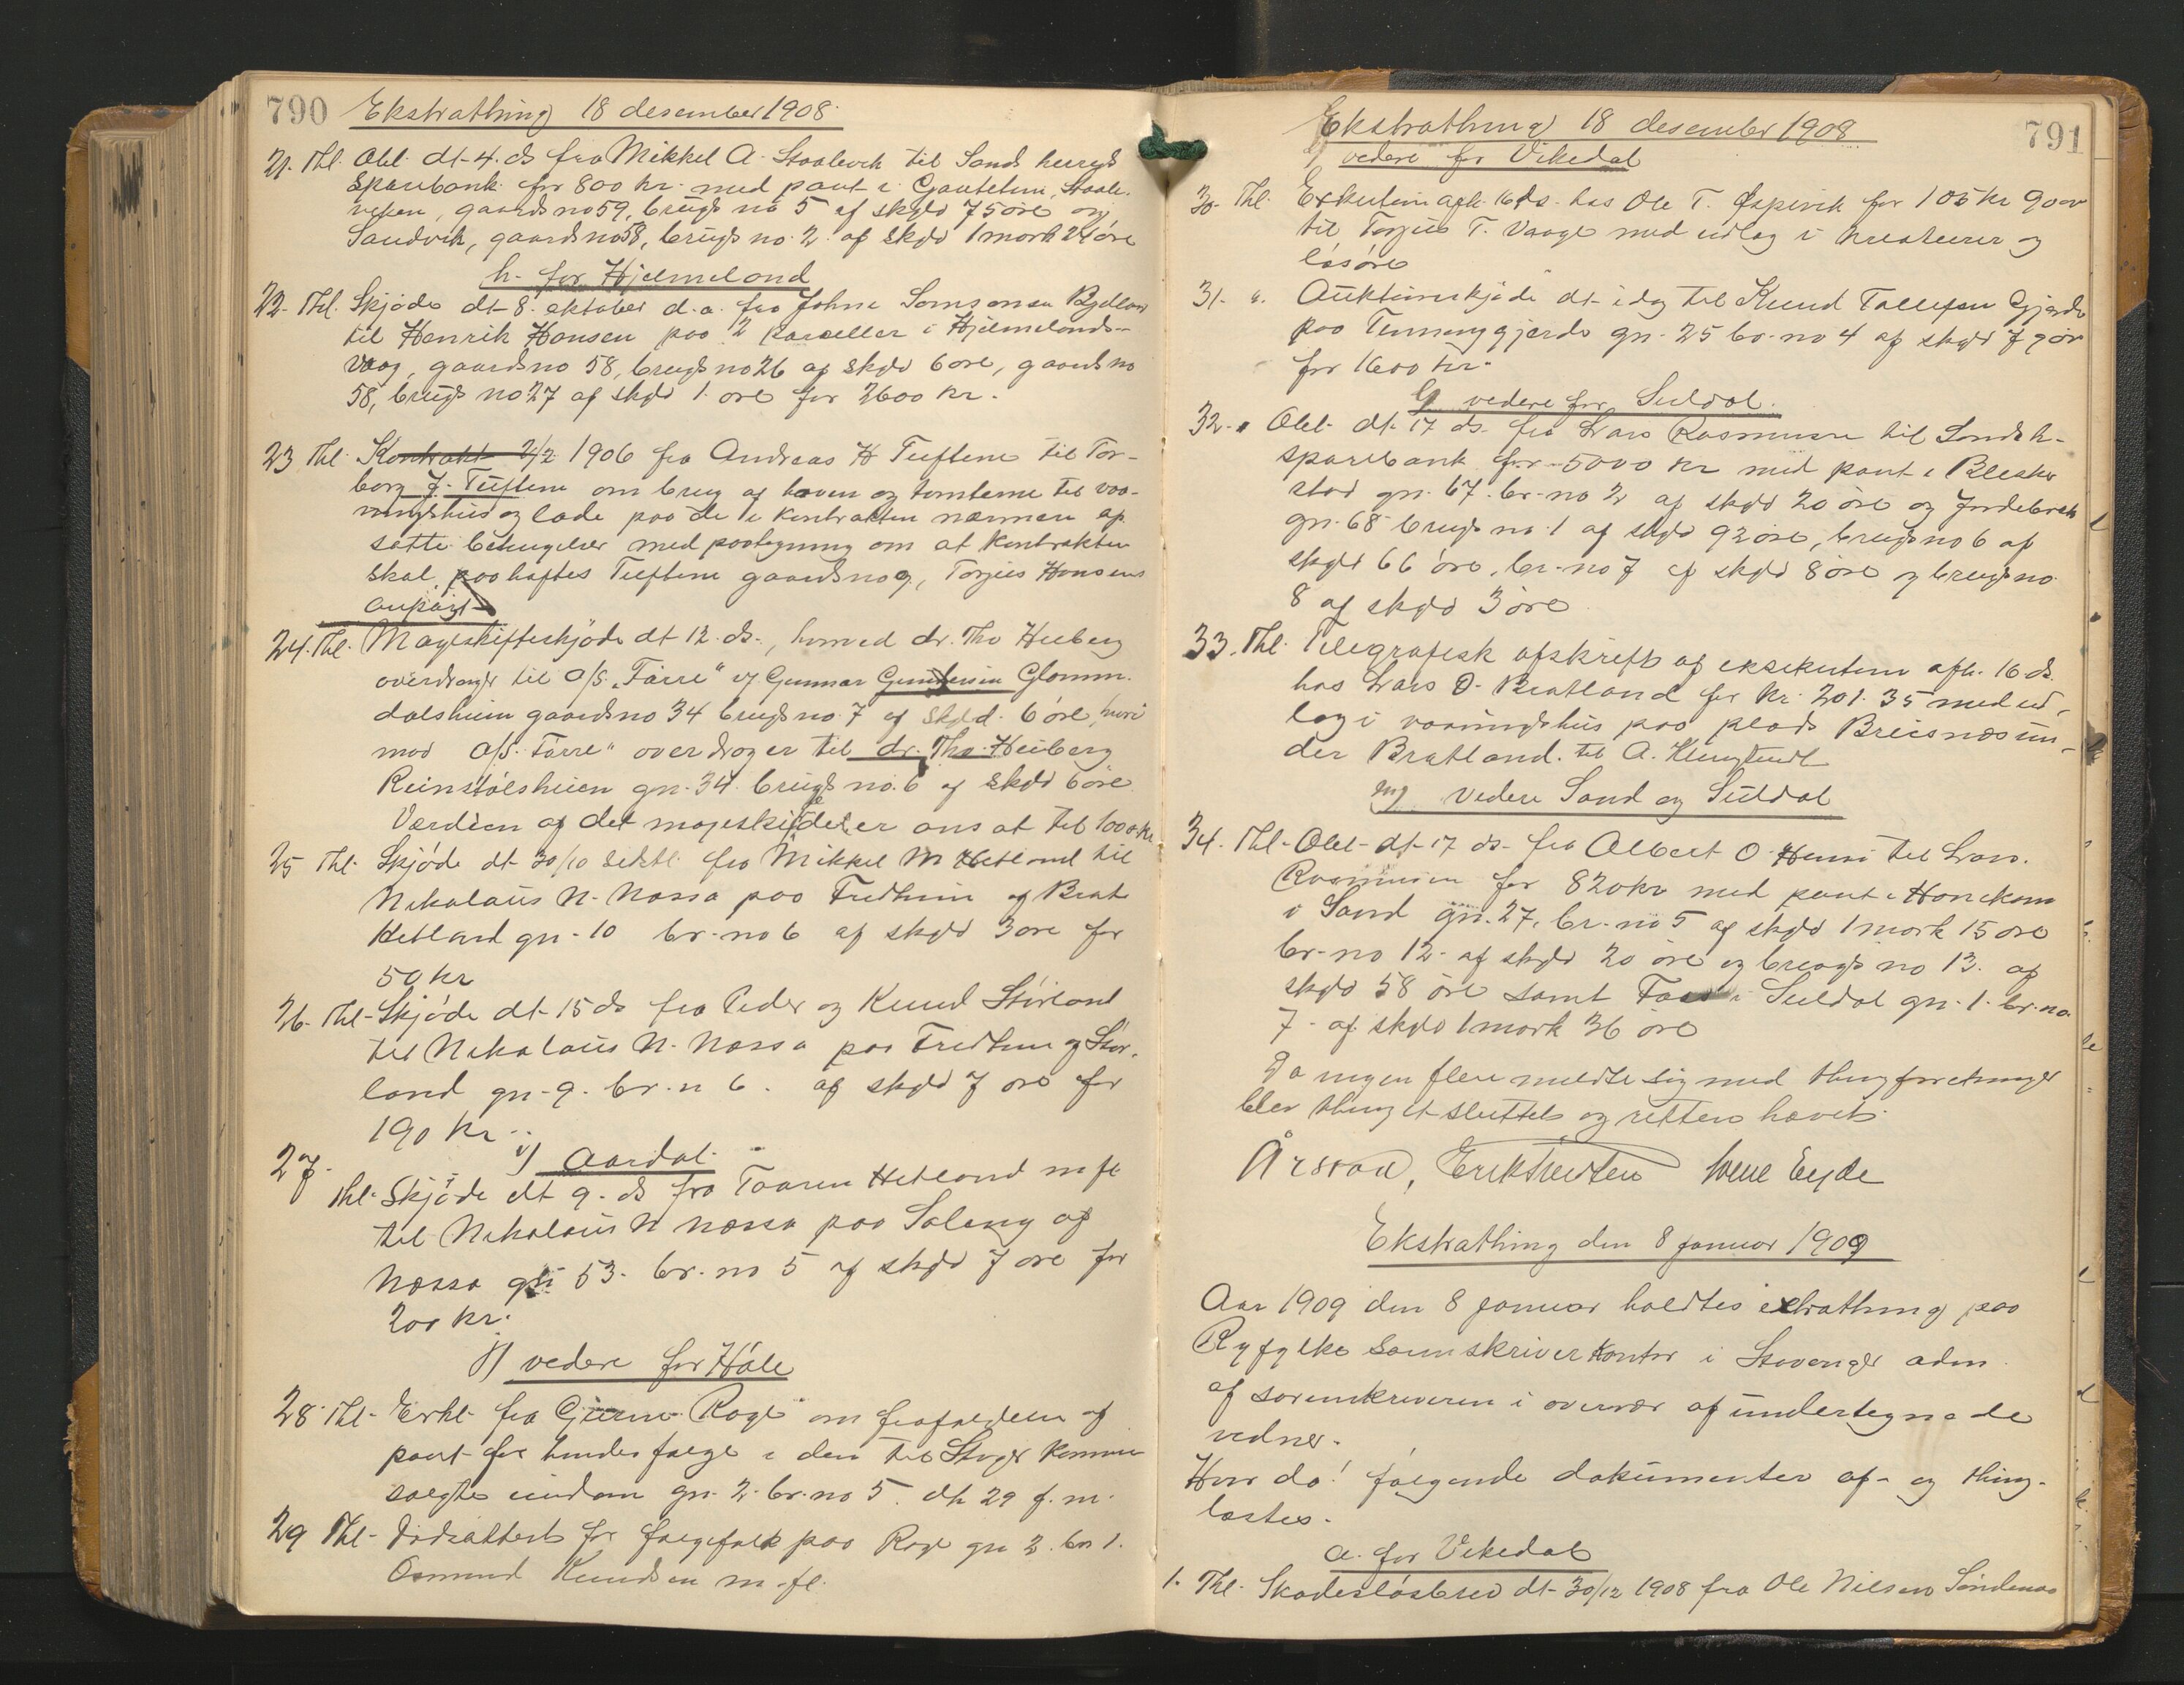 790 Ekstrathing 18 desember 1908.
21. Thl. Obl. dt. 4. ds fra Mikkel A. Staalevik til Sands herreds
sparebank for 800 kr. med pant i Gautetun, Staale-
viken, gaards no 59, brugs no 5 af skyld 75 øre og
Sandvik, gaards no 58, brugs no. 2. af skyld 1 mark 24 øre
h. for Hjelmeland
22. Thl. Skjøde dt. 8. oktober d.a. fra Johne Samsonsen
til Henrik Hansen paa 2 parceller i Hjelmelands-
vaag, gaards no 58, brugs no 26 af skyld 6 øre, gaards no
58, brugs no 27 af skyld 1. øre for 2600 kr.
23 Thl. Kontrakt 2/2 1906 fra Andreas H Tuftene til Tor-
borg J. Tuftene om brug af haven og tomterne til vaa-
ningshus og lade paa de i kontrakten nærmere op
satte betingelser med paategning om at kontrakten
skal paahæftes Tuftene gaards no 9, Torjus Hansens
anpart
24. Thl. Mageskifteskjøde dt 12. ds., hvorved dr. Tho Heiberg
overdrager til A/S. "Førre" v/ Gunnar Gundersen Glomm.
dalsheim gaards no 34 brugs no. 7 af skyld. 6 øre, hvori
mod A/S. Førre" overdrager til dr. Tho. Heiberg
Reinstølsheien gn. 34. brugs no. 6 af skyld 6 øre
Værdien af det mageskiftede er ansat til 1000 kr
25 Thl. Skjøde dt 30/10 sidstl. fra Mikkel M Hetland til
Nikolaus N. Nassa paa Fredheim af Brat
Hetland gn. 10 br. no 6 af skyld 3 øre for
50 kr
26. Thl. Skjøde dt. 15 ds fra Peder og Knud Størland
til Nikolaus N. Nassa paa Fredheim af Stør-
land gn. 9. br. n 6. af skyld 7 øre for
190 kr.
i) Aardal.
27. Thl. Skjøde dt 9. ds fra Taaren Hetland m fl
til Nikolaus N Nassa paa Soleng af
Nassa gn 53. br. no 5 af skyld 7 øre for
200 kr.
j) vedere for Høle
28. Thl. Erkl. fra Gjerine Rage om frafaldelse af
pant for hendes følge i den til Stvgr kommune
solgte eiendom gn. 2. br. no 5. dt. 29 f. m.
29 Thl. Dødsattest for følgefolk paa Rage gn 2. bn 1.
Osmund Knudsen m. fl.
Ekstrathing 18 desember 1908 791
vedere for Vikedal
30. Thl. Exkution afh. 16 ds. hos Ole T. Øspevik for 105 kr 90 ør
til Torjus T. Vaage med udlæg i kreaturer og
løsøre
31. ". Auktionsskjøde dt. idag til Knud Tollefsen Gjerde
paa gn. 25 br. no 4 af skyld 79 ør
for 1600 kr.
vedere for Suldal.
32. " Obl. dt. 17 ds. fra Lars Rasmussen til Sands h.
sparebank for 5000 kr med pant i
stad gn. 67. br. no 2 af skyld 20 øre og
gn. 68 brugs no. 1 af skyld 92 øre, brugs no 6 af
skyld 66 øre, br. no 7 af skyld 8 øre og brugs no.
8 af skyld 3 øre.
33. Thl. Telegrafisk afskrift af eksekution afh. 16 ds.
hos Lars O. Bratland for kr. 201.35 med ud-
læg i vaaningshus paa plads un-
der Bratland. til A.
vedere Sand og Suldal
34. Thl. Obl. dt. 17 ds fra Albert O. til Lars.
Rasmussen for 820 kr med pant i
i Sand gn. 27. br. no 5 af skyld 1 mark 15 øre
br. no 12. af skyld 20 øre og brugs no 13. af
skyld 58 øre samt i Suldal gn. 1. br. no.
7. af skyld 1 mark 36 øre
Da ingen flere meldte sig med thingforretninger
blev thinget sluttet og retten hævet.
Årstad, Erik Iversten Eyde
Ekstrathing den 8 januar 1909
Aar 1909 den 8 januar holdtes extrathing paa
Ryfylke sorenskriverkontor i Stavanger adm
af sorenskriveren i overvær af undertegnede
vidner.
Hvor da! følgende dokumenter af- og thing-
læstes.
a. for Vikedal
1. Thl. Skadesløsbrev dt. 30/12 1908 fra Ole Nilsen Søndenaa